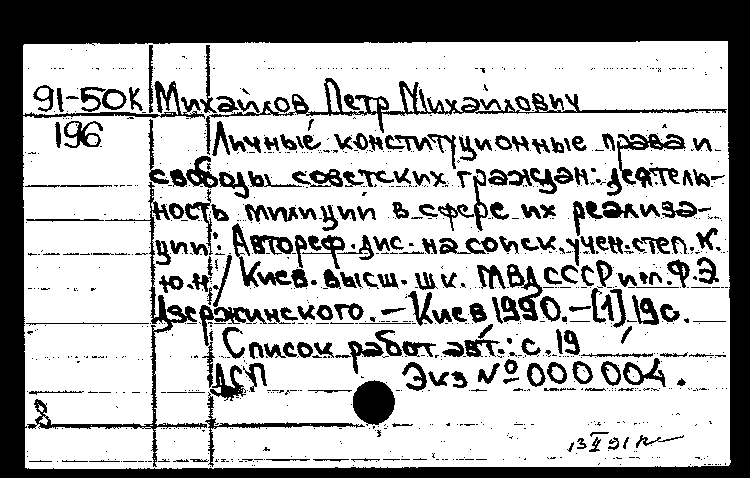 91-50К Михайлов Петр Михайлович
196 Личные конституционные права и
свободы советских граждан: деятель-
ность милиции в сфере их реализа-
ции: Автореф. дис. на соиск. учен. степ. к.
ю.н. / Киев. высш. шк. МВД СССР им. Ф.Э.
Дзержинского. - Киев 1990. - [1] 19 с.
Список работ авт.: с. 19
ДСП Экз № 000004.
8
13 II 91